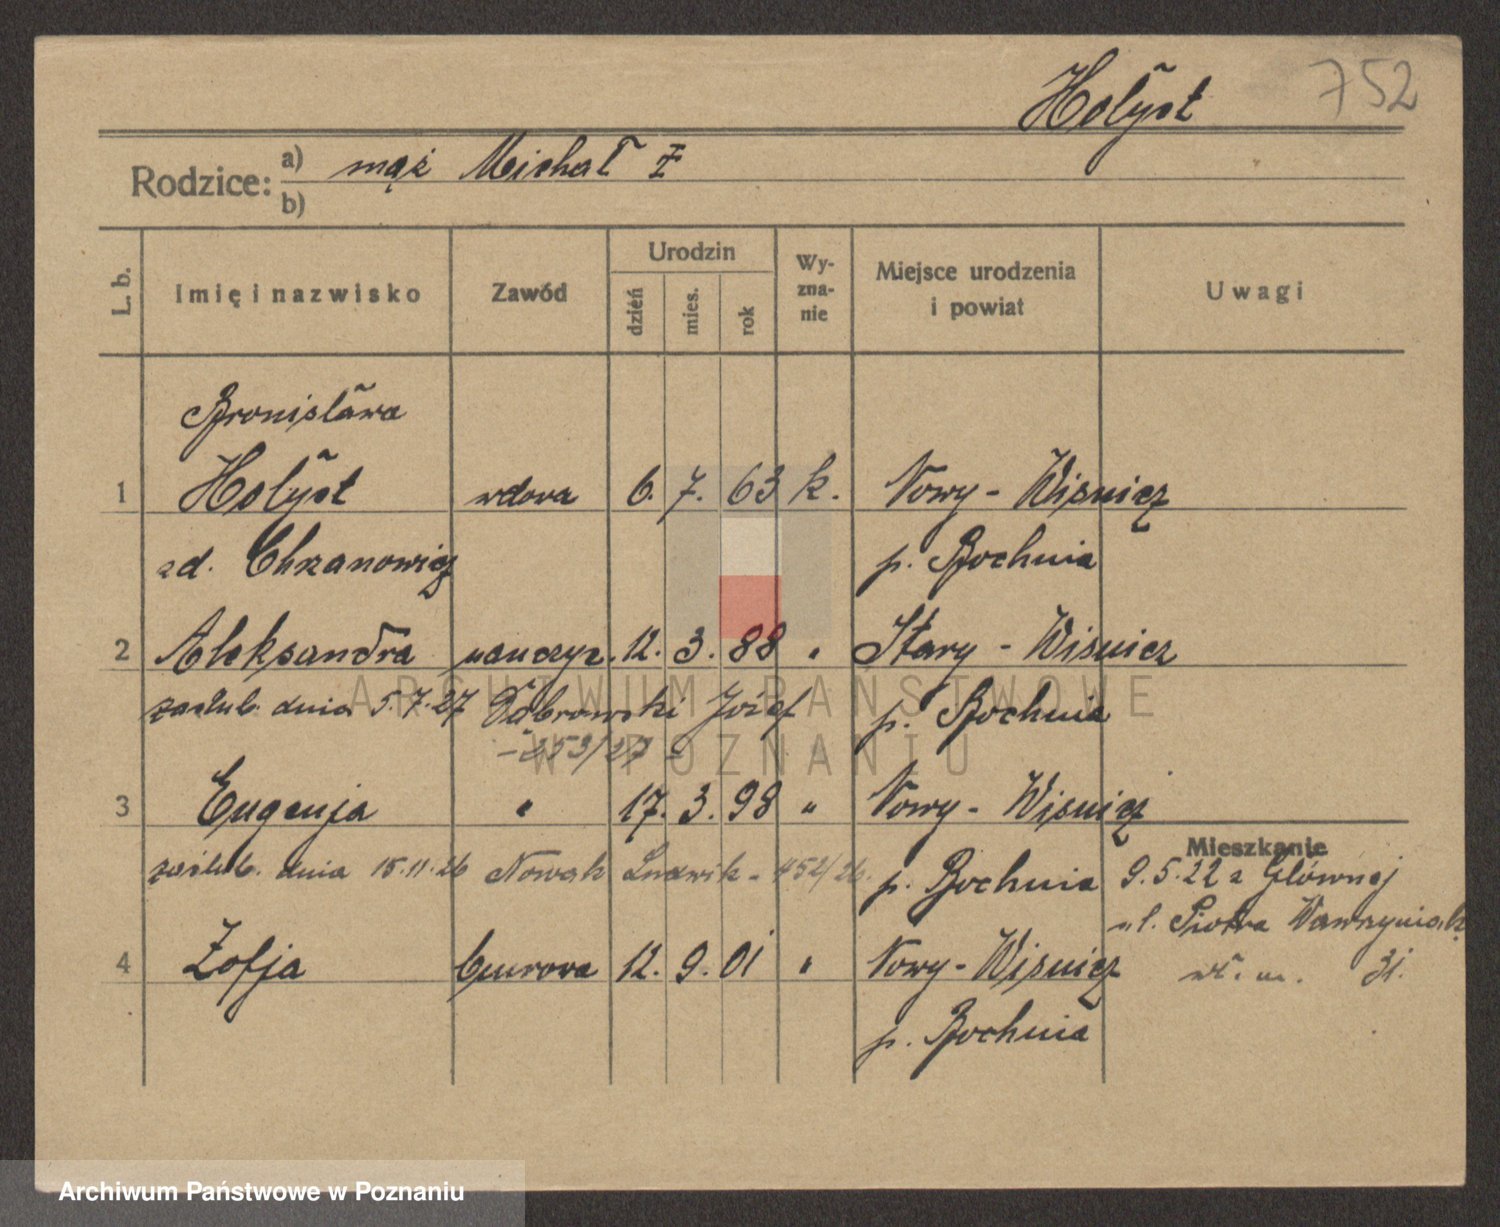 Hołyst 752
Rodzice: a) mąż Michał ‡
b)
L. b. Imię i nazwisko Zawód Urodzin dzień mies. rok Wy-zna-nie Miejsce urodzenia i powiat Uwagi
Bronisława
1 Hołyst wdowa 6. 7. 63 k. Nowy - Wisnicz
zd. Chrzanowicz p. Bochnia
2 Aleksandra nauczyc. 12. 3. 88 " Stary - Wisnicz
zaślub. dnia 5.7.27 Dąbrowski Józef p. Bochnia
- 253/27 -
3 Eugenja " 17. 3. 98 " Nowy - Wisnicz
Mieszkanie
zaślub. dnia 15.11.26 Nowak Ludwik - 452/26. p. Bochnia 9.5.22 z Głównej
ul. Piotra Wawrzyniaka
4 Zofja biurowa 12. 9. 01 " Nowy - Wisnicz wł. m. 31.
p. Bochnia
ARCHIWUM PAŃSTWOWE
W POZNANIU
Archiwum Państwowe w Poznaniu